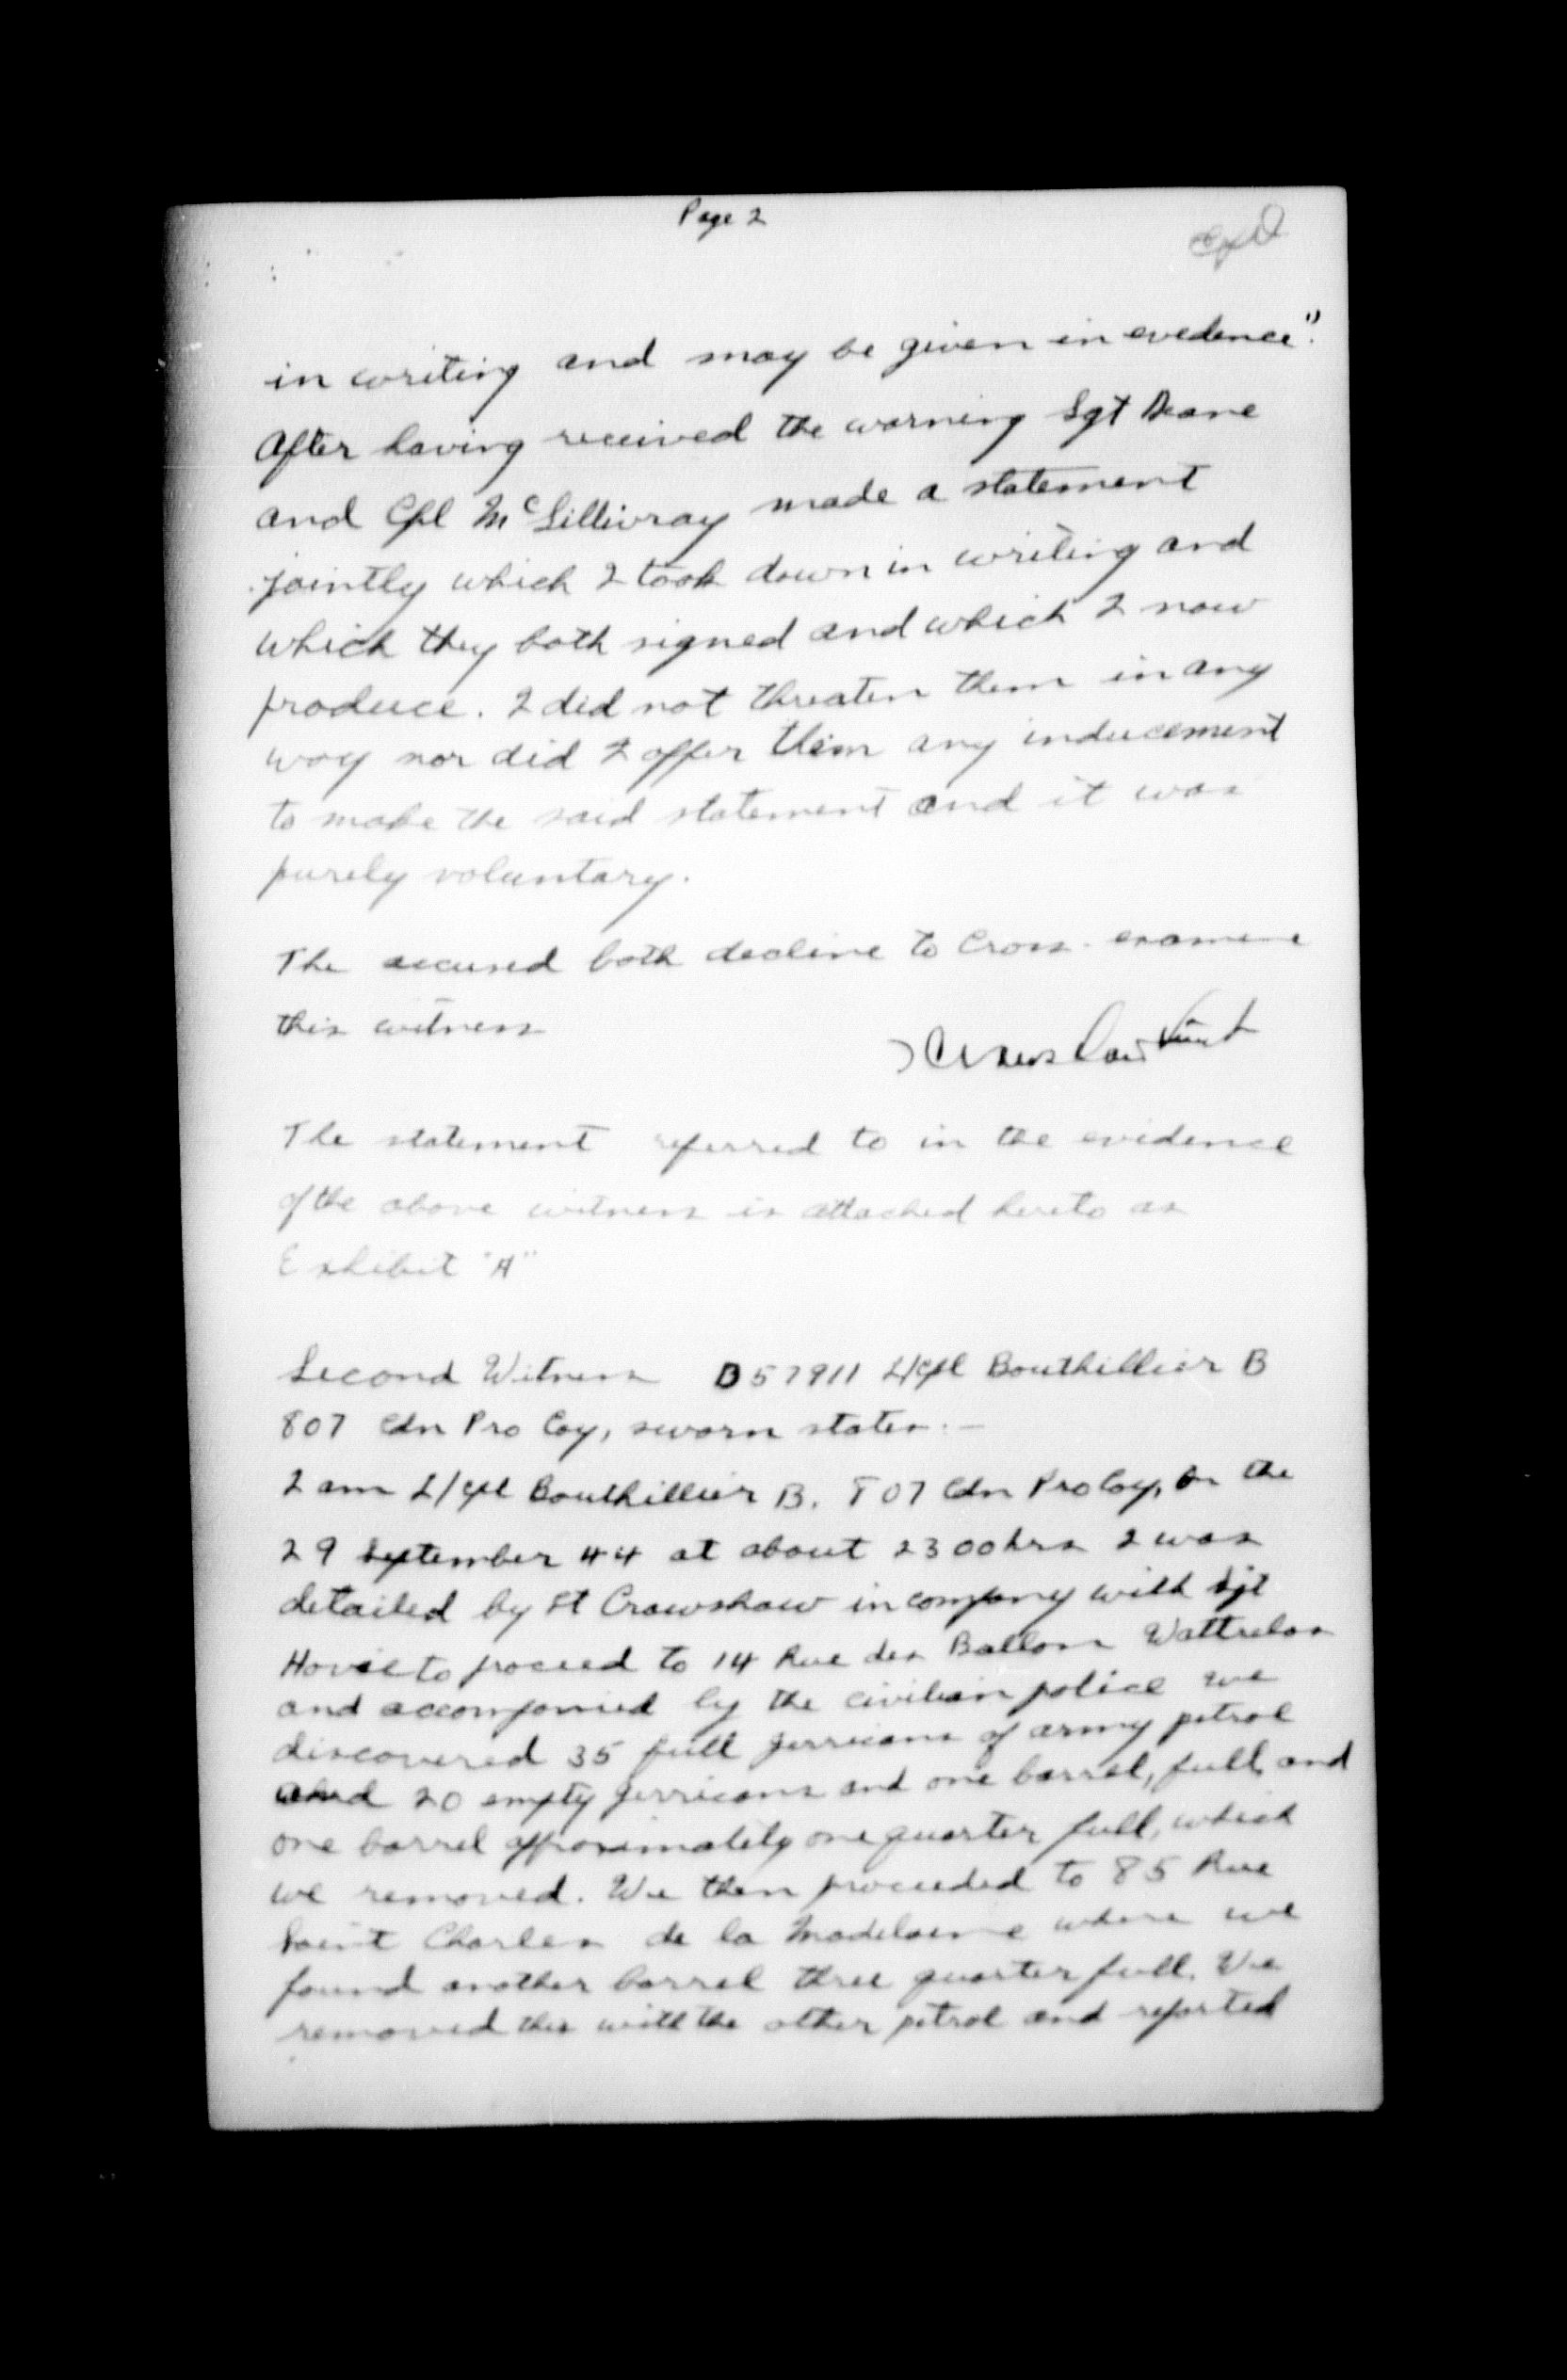 Page 2
in writing and may be given in evedence".
After having received the warning Sgt Deane
and Cpl McGillivray made a statement
jointly which I took down in writing and
which they both signed and which I now
produce. I did not threaten them in any
way nor did I offer them any inducement
to make the said statement and it was
purely voluntary.
The accused both decline to Cross-examine
this witness
Crawshaw Lieut
The statement referred to in the evidence
of the above witness is attached hereto as
Exhibit "A"
Second Witness D57911 L/Cpl Bouthillier B
807 Cdn Pro Coy, sworn states:-
I am L/Cpl Bouthillier B. 807 Cdn Pro Coy, On the
29 September 44 at about 2300hrs I was
detailed by Lt Crawshaw in company with Sjt
Howie to proceed to 14 Rue des Ballons Wattrelos
and accompanied by the civilian police we
discovered 35 full jerricans of army petrol
and 20 empty jerricans and one barrel, full, and
one barrel approximately one quarter full, which
we removed. We then proceeded to 85 Rue
Saint Charles de la Madelaine where we
found another barrel three quarter full. We
removed this with the other petrol and reported